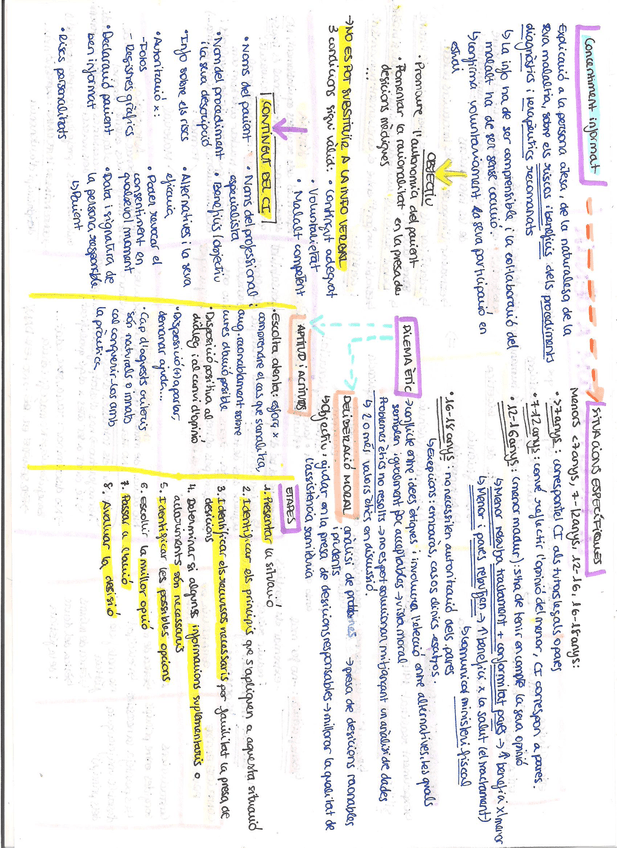 Consentiment informat
Explicació a la persona atesa, de la naturalesa de la
seva malaltia, sobre els riscos i beneficis dels procediments
diagnòstics i terapèutics recomanats
↳ la info ha de ser comprensible i la col·laboració del
malalt ha de ser sense coacció.
↳ confirma voluntàriament la seva participació en
estudi
OBJECTIU
• Promoure l'autonomia del pacient
• Fomentar la racionalitat en la presa de
decisions mèdiques
...
→ NO ES POT SUBSTITUIR A LA INFO VERBAL
3 condicions sigui vàlid: • Contingut adequat
• Voluntarietat
• Malalt competent
CONTINGUT DEL CI
• Noms del pacient
• Nom del procediment
i la seva descripció
• Info sobre els riscs
• Autorització x:
- Fotos
- Registres gràfics
• Declaració pacient
ben informat
• Riscs personalitzats
• Noms del professional i
especialista
• Beneficis i objectiu
• Alternatives i la seva
eficàcia
• Poder revocar el
consentiment en
qualsevol moment
• Data i signatura de
la persona responsable
↳ Pacient
SITUACIONS ESPECÍFIQUES
Menors <7anys, 7-12anys, 12-16, 16-18anys:
anys: correspon el CI als tutors legals o pares
• 7-12 anys: convé sol·licitar l'opinió del menor, CI correspon a pares.
• 12-16anys: (menor madur): s'ha de tenir en compte la seva opinió
↳ Menor rebutja tractament + conformitat pares → ↑ benefici x menor
↳ Menor i pares rebutgen → ↑ benefici x la salut (el tractament)
↳ comunicar ministeri fiscal
• 16-18 anys: no necessiten autorització dels pares
↳ Excepcions: embaràs, casos clínics, assatjos.
DILEMA ÈTIC → conflicte entre idees ètiques i involucra l'elecció entre alternatives, les quals
semblen igualment poc acceptables → vista moral
Problemes ètics no resolts → no es pot solucionar mitjançant un anàlisi de dades
↳ 2 o més valors ètics en discussió.
DELIBERACIÓ MORAL: anàlisi de problemes → presa de decisions raonables
i prudents
↳ Objectiu: ajudar en la presa de decisions responsables → millorar la qualitat de
l'assistència sanitària
APTITUD i ACTITUDS
• Escolta atenta: esforç x
comprendre el cas que s'analitza,
aug. raonablement sobre
cures d'acció possible
• Disposició positiva al
diàleg i al canvi d'opinió
demanar ajuda...
• Cap d'aquests criteris
són naturals o innats
cal adquirir-los amb
la pràctica
ETAPES
1. Presentar la situació
2. Identificar els principis que s'apliquen a aquesta situació
3. Identificar els recursos necessaris per facilitar la presa de
decisions
4. Determinar si algunes informacions suplementaris o
aclariments són necessaris
5. Identificar les possibles opcions
6. Escollir la millor opció
7. Passar a l'acció
8. Avaluar la decisió